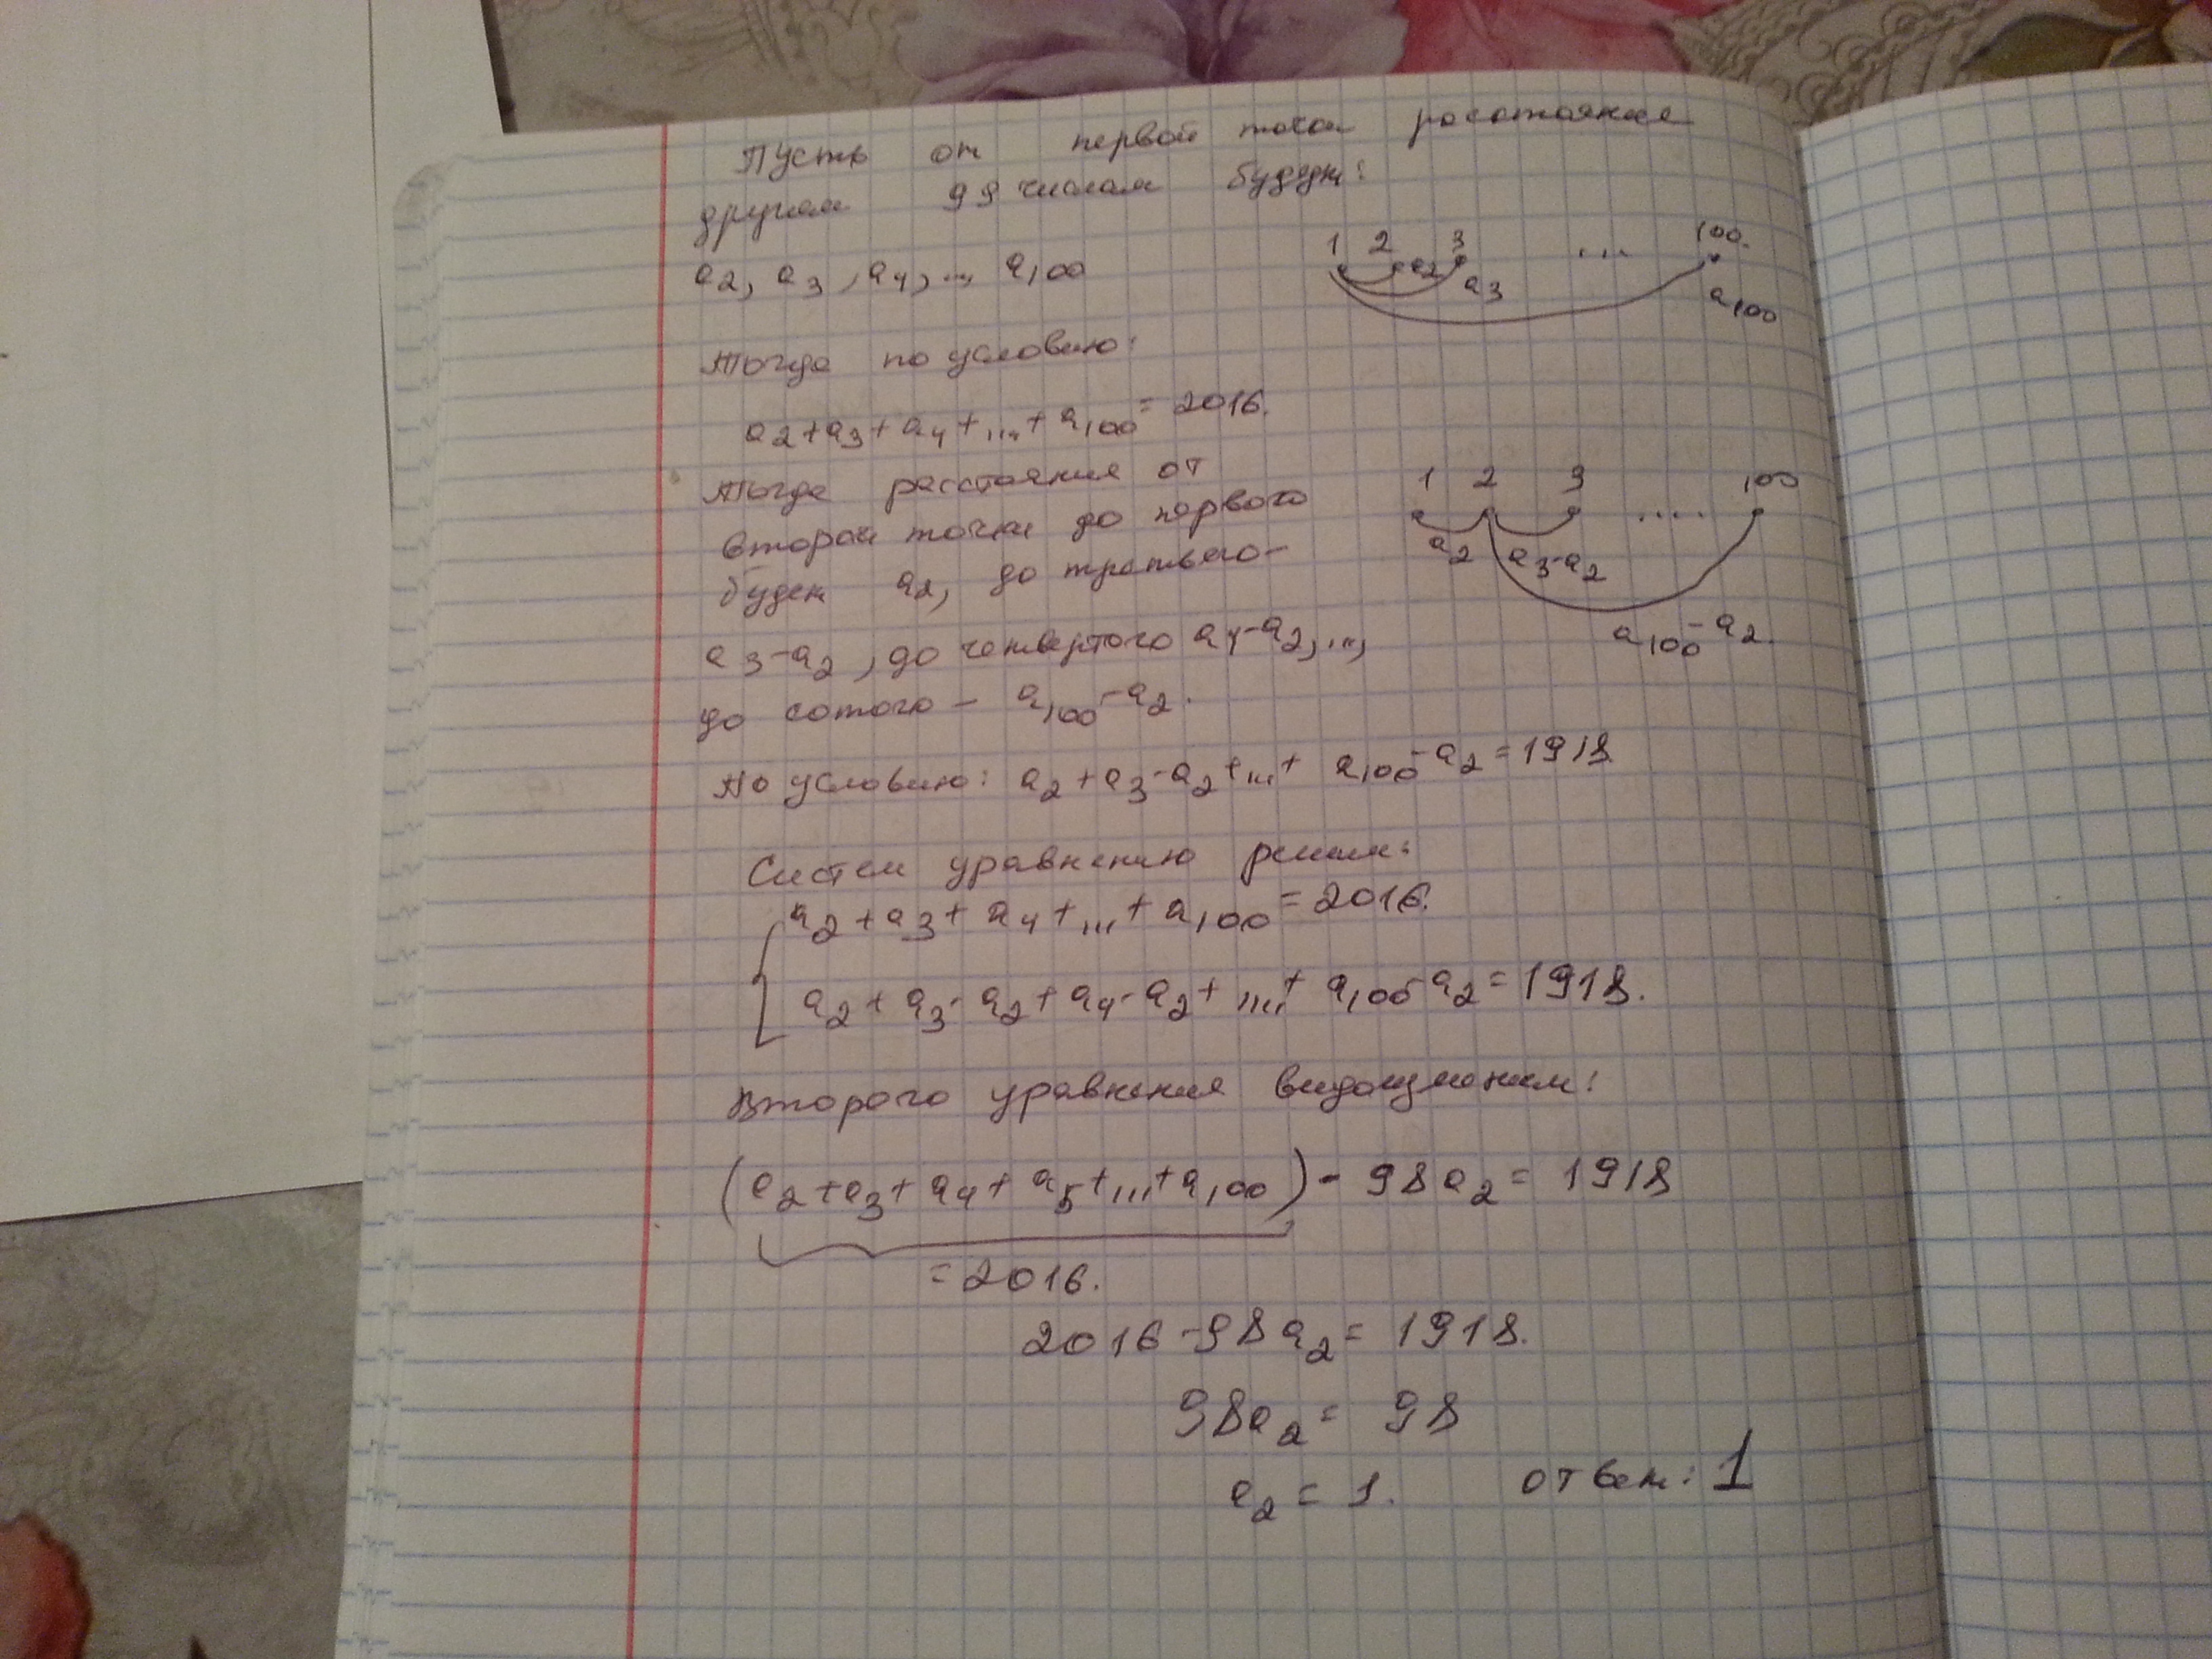 Пусть от первой точки расстояние
другим 99 числам будут:
a₂, a₃, a₄, ..., a₁₀₀
1 2 3 ... 100.
a₂ a₃ a₁₀₀
Тогда по условию:
a₂+a₃+a₄+...+a₁₀₀=2016.
Тогда расстояния от
второй точки до первого
будет a₂, до третьего-
a₃-a₂, до четвертого a₄-a₂,...,
до сотого - a₁₀₀-a₂.
1 2 3 .... 100
a₂ a₃-a₂
a₁₀₀-a₂.
По условию: a₂+a₃-a₂+...+ a₁₀₀-a₂=1918.
Систем уравнению решим:
a₂+a₃+a₄+...+a₁₀₀=2016.
a₂+a₃-a₂+a₄-a₂+...+a₁₀₀-a₂=1918.
Второго уравнения видоизменим:
(a₂+a₃+a₄+a₅+...+a₁₀₀)-98a₂=1918
=2016.
2016-98a₂=1918.
98a₂=98
a₂=1. ответ: 1